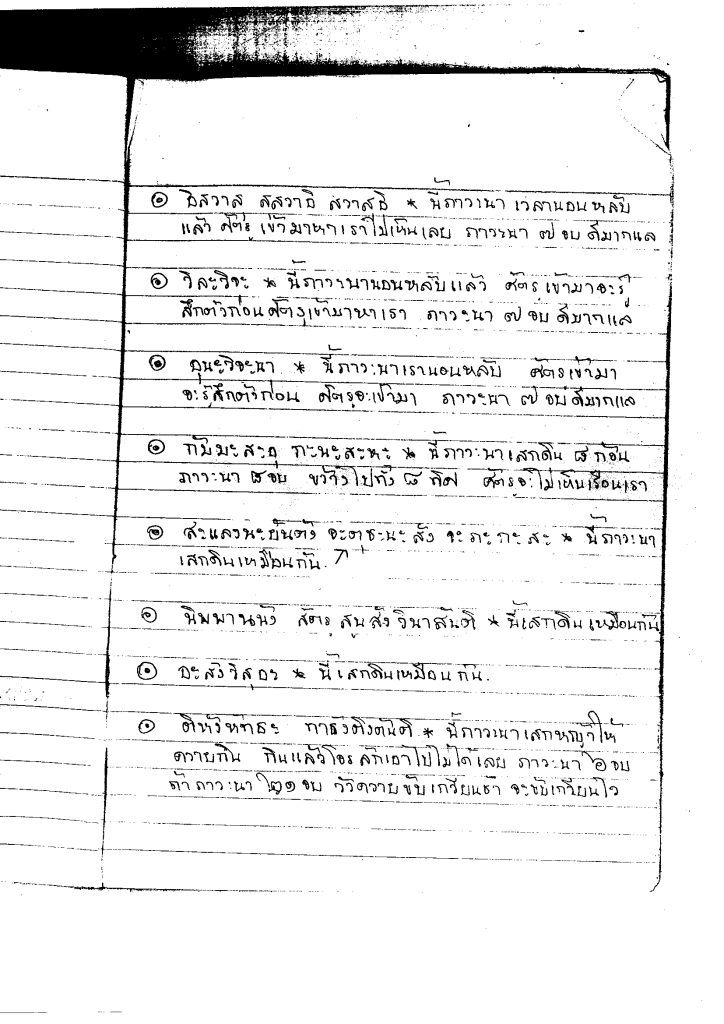 ๏ อิสวาสุ สุสวาอิ สวาสุอิ * นี้ภาวะนา เวลานอนหลับ
แล้ว ศัตรู เข้ามาหาเราไม่เห็นเลย ภาวะนา ๗ จบ ดีมากแล
๏ วิละวิจะ * นี้ภาวะนานอนหลับแล้ว ศัตรูเข้ามาจะรู้
สึกตัวก่อนศัตรูเข้ามาหาเรา ภาวะนา ๗ จบ ดีมากแล
๏ ฉุนะวิจะนา * นี้ภาวะนาเรานอนหลับ ศัตรูเข้ามา
จะรู้สึกตัวก่อน ศัตรูจะเข้ามา ภาวะนา ๗ จบ ดีมากแล
๏ กัมมะสะ กะนะสะหะ * นี้ภาวะนาเสกดิน ๘ ก้อน
ภาวะนา ๘ จบ ขว้างไปทั้ง ๘ ทิศ ศัตรูจะไม่เห็นเรือนเรา
๏ * นี้ภาวะนา
เสกดินเหมือนกัน.
๏ นิพพานนัง สัตรู สูนสัง วินาสันติ * นี้เสกดินเหมือนกัน
๏ อะสังวิสุ * นี้เสกดินเหมือนกัน.
๏ * นี้ภาวะนาเสกหญ้าให้
ควายกิน กินแล้วโจรลักเอาไปไม่ได้เลย ภาวะนา จบ
ถ้าภาวะนา ๒๑ จบ วัวควายขับเกวียนช้า จะขับเกวียนไว